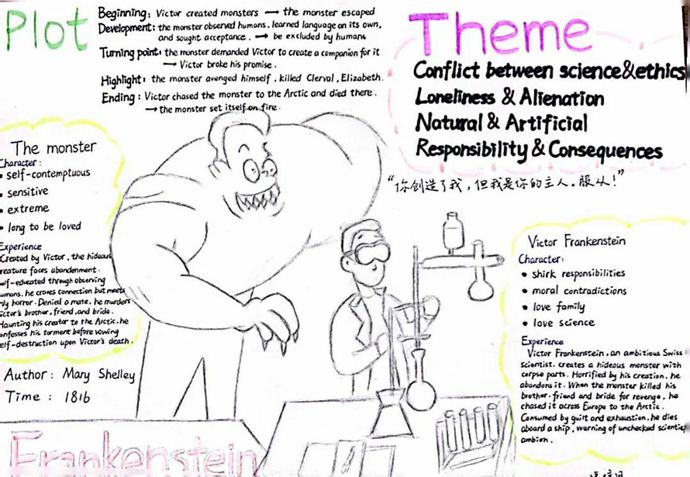 Plot
Beginning: Victor created monsters → the monster escaped
Development: the monster observed humans, learned language on its own,
and sought acceptance. → be excluded by humans
Turning point: the monster demanded Victor to create a companion for it
→ Victor broke his promise.
Highlight: the monster avenged himself, killed Clerval, Elizabeth.
Ending: Victor chased the monster to the Arctic and died there.
→ the monster set itself on fire.
Theme
Conflict between science&ethics
Loneliness & Alienation
Natural & Artificial
Responsibility & Consequences
"你创造了我，但我是你的主人。服从！"
The monster
Character:
• self-contemptuous
• sensitive
• extreme
• long to be loved
Experience
Created by Victor, the hideous
creature faces abandonment.
self-educated through observing
humans, he craves connection but meets
only horror. Denied a mate, he murders
Victor's brother, friend, and bride.
Haunting his creator to the Arctic, he
confesses his torment before vowing
self-destruction upon Victor's death.
Author: Mary Shelley
Time: 1816
Frankenstein
Victor Frankenstein
Character:
• shirk responsibilities
• moral contradictions
• love family
• love science
Experience
Victor Frankenstein, an ambitious Swiss
scientist, creates a hideous monster with
corpse parts. Horrified by his creation, he
abandons it. When the monster killed his
brother, friend and bride for revenge, he
chased it across Europe to the Arctic.
Consumed by guilt and exhaustion, he dies
aboard a ship, warning of unchecked scientific
ambion.